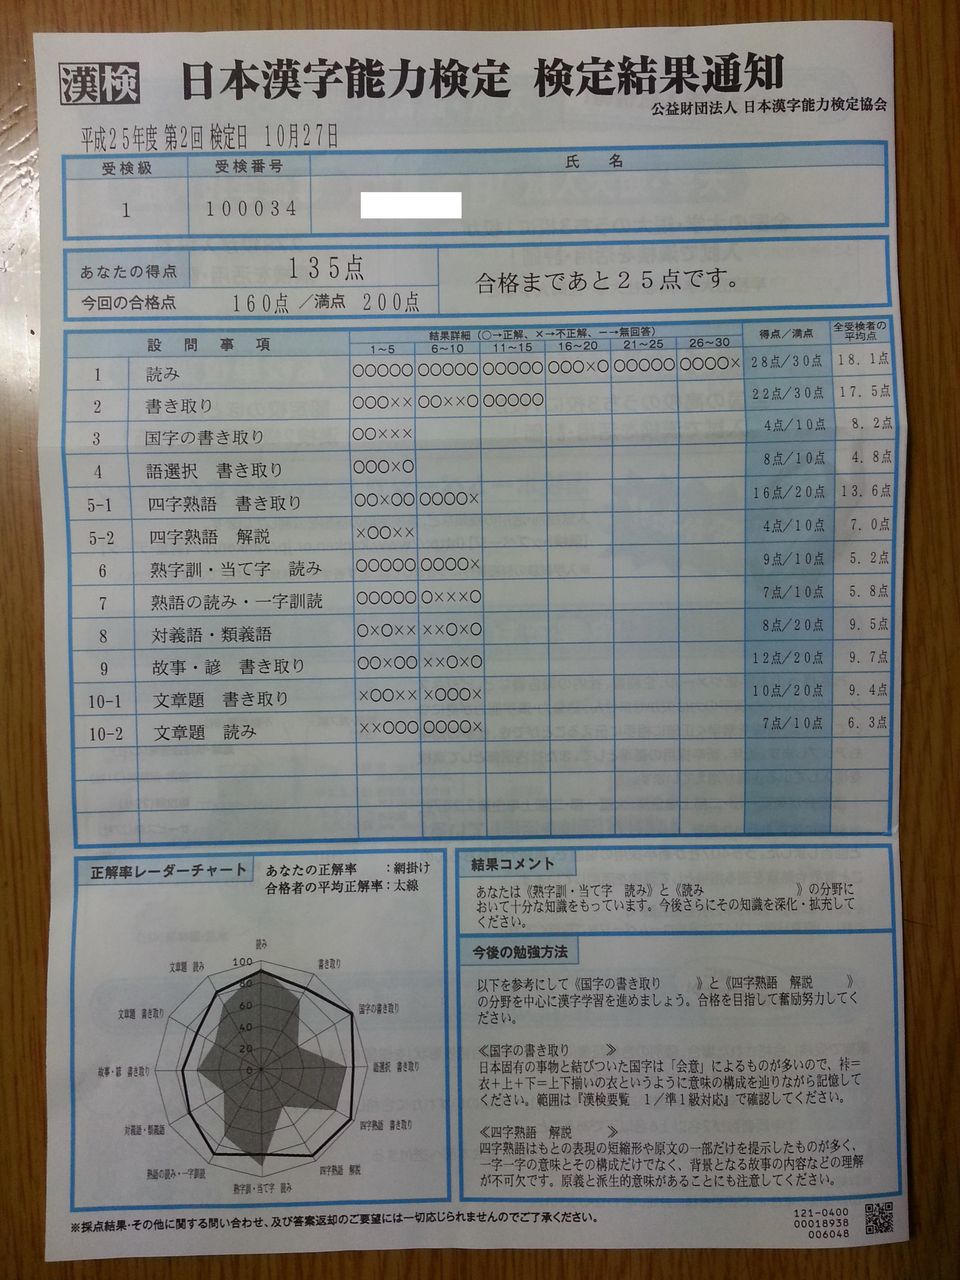 漢検 日本漢字能力検定 検定結果通知
公益財団法人 日本漢字能力検定協会
平成25年度 第2回 検定日 10月27日
受検級 受検番号 氏名
1 100034
あなたの得点 135点
今回の合格点 160点 /満点 200点
合格まであと25点です。
設問事項 結果詳細(○→正解、×→不正解、-→無回答) 得点/満点 全受検者の平均点
1~5 6~10 11~15 16~20 21~25 26~30
1 読み ○○○○○ ○○○○○ ○○○○○ ○○○×○ ○○○○○ ○○○○× 28点/30点 18.1点
2 書き取り ○○○×× ○○××○ ○○○○○ 22点/30点 17.5点
3 国字の書き取り ○○××× 4点/10点 8.2点
4 語選択 書き取り ○○○×○ 8点/10点 4.8点
5-1 四字熟語 書き取り ○○×○○ ○○○○× 16点/20点 13.6点
5-2 四字熟語 解説 ×○○×× 4点/10点 7.0点
6 熟字訓・当て字 読み ○○○○○ ○○○○× 9点/10点 5.2点
7 熟語の読み・一字訓読 ○○○○○ ○×××○ 7点/10点 5.8点
8 対義語・類義語 ○×○×× ××○×○ 8点/20点 9.5点
9 故事・諺 書き取り ○○×○○ ××○×○ 12点/20点 9.7点
10-1 文章題 書き取り ×○○×× ×○○○× 10点/20点 9.4点
10-2 文章題 読み ××○○○ ○○○○× 7点/10点 6.3点
正解率レーダーチャート
あなたの正解率 :網掛け
合格者の平均正解率:太線
読み
書き取り
国字の書き取り
語選択 書き取り
四字熟語 書き取り
四字熟語 解説
熟字訓・当て字 読み
熟語の読み・一字訓読
対義語・類義語
故事・諺 書き取り
文章題 書き取り
文章題 読み
100
80
60
40
20
0
結果コメント
あなたは《熟字訓・当て字 読み》と《読み 》の分野に
おいて十分な知識をもっています。今後さらにその知識を深化・拡充して
ください。
今後の勉強方法
以下を参考にして《国字の書き取り 》と《四字熟語 解説 》
の分野を中心に漢字学習を進めましょう。合格を目指して奮励努力してく
ださい。
≪国字の書き取り ≫
日本固有の事物と結びついた国字は「会意」によるものが多いので、裃=
衣+上+下=上下揃いの衣というように意味の構成を辿りながら記憶して
ください。範囲は『漢検要覧 1/準1級対応』で確認してください。
≪四字熟語 解説 ≫
四字熟語はもとの表現の短縮形や原文の一部だけを提示したものが多く、
一字一字の意味とその構成だけでなく、背景となる故事の内容などの理解
が不可欠です。原義と派生的意味があることにも注意してください。
※採点結果・その他に関する問い合わせ、及び答案返却のご要望には一切応じられませんのでご了承ください。
121-0400
00018938
006048